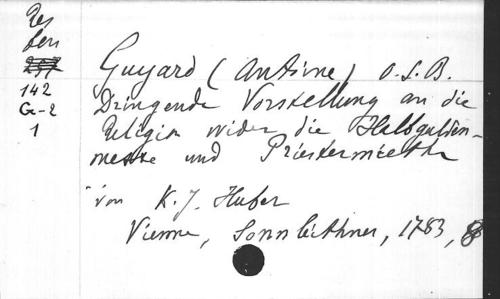 Res
ben
257
142
G-2
1
Guyard (Antoine) O.S.B.
Dringende Vorstellung an die
Religion wider die Halbgulden-
messe und Priestermiethe
von K. J. Huber
Vienne, Sonnleithner, 1783, 8